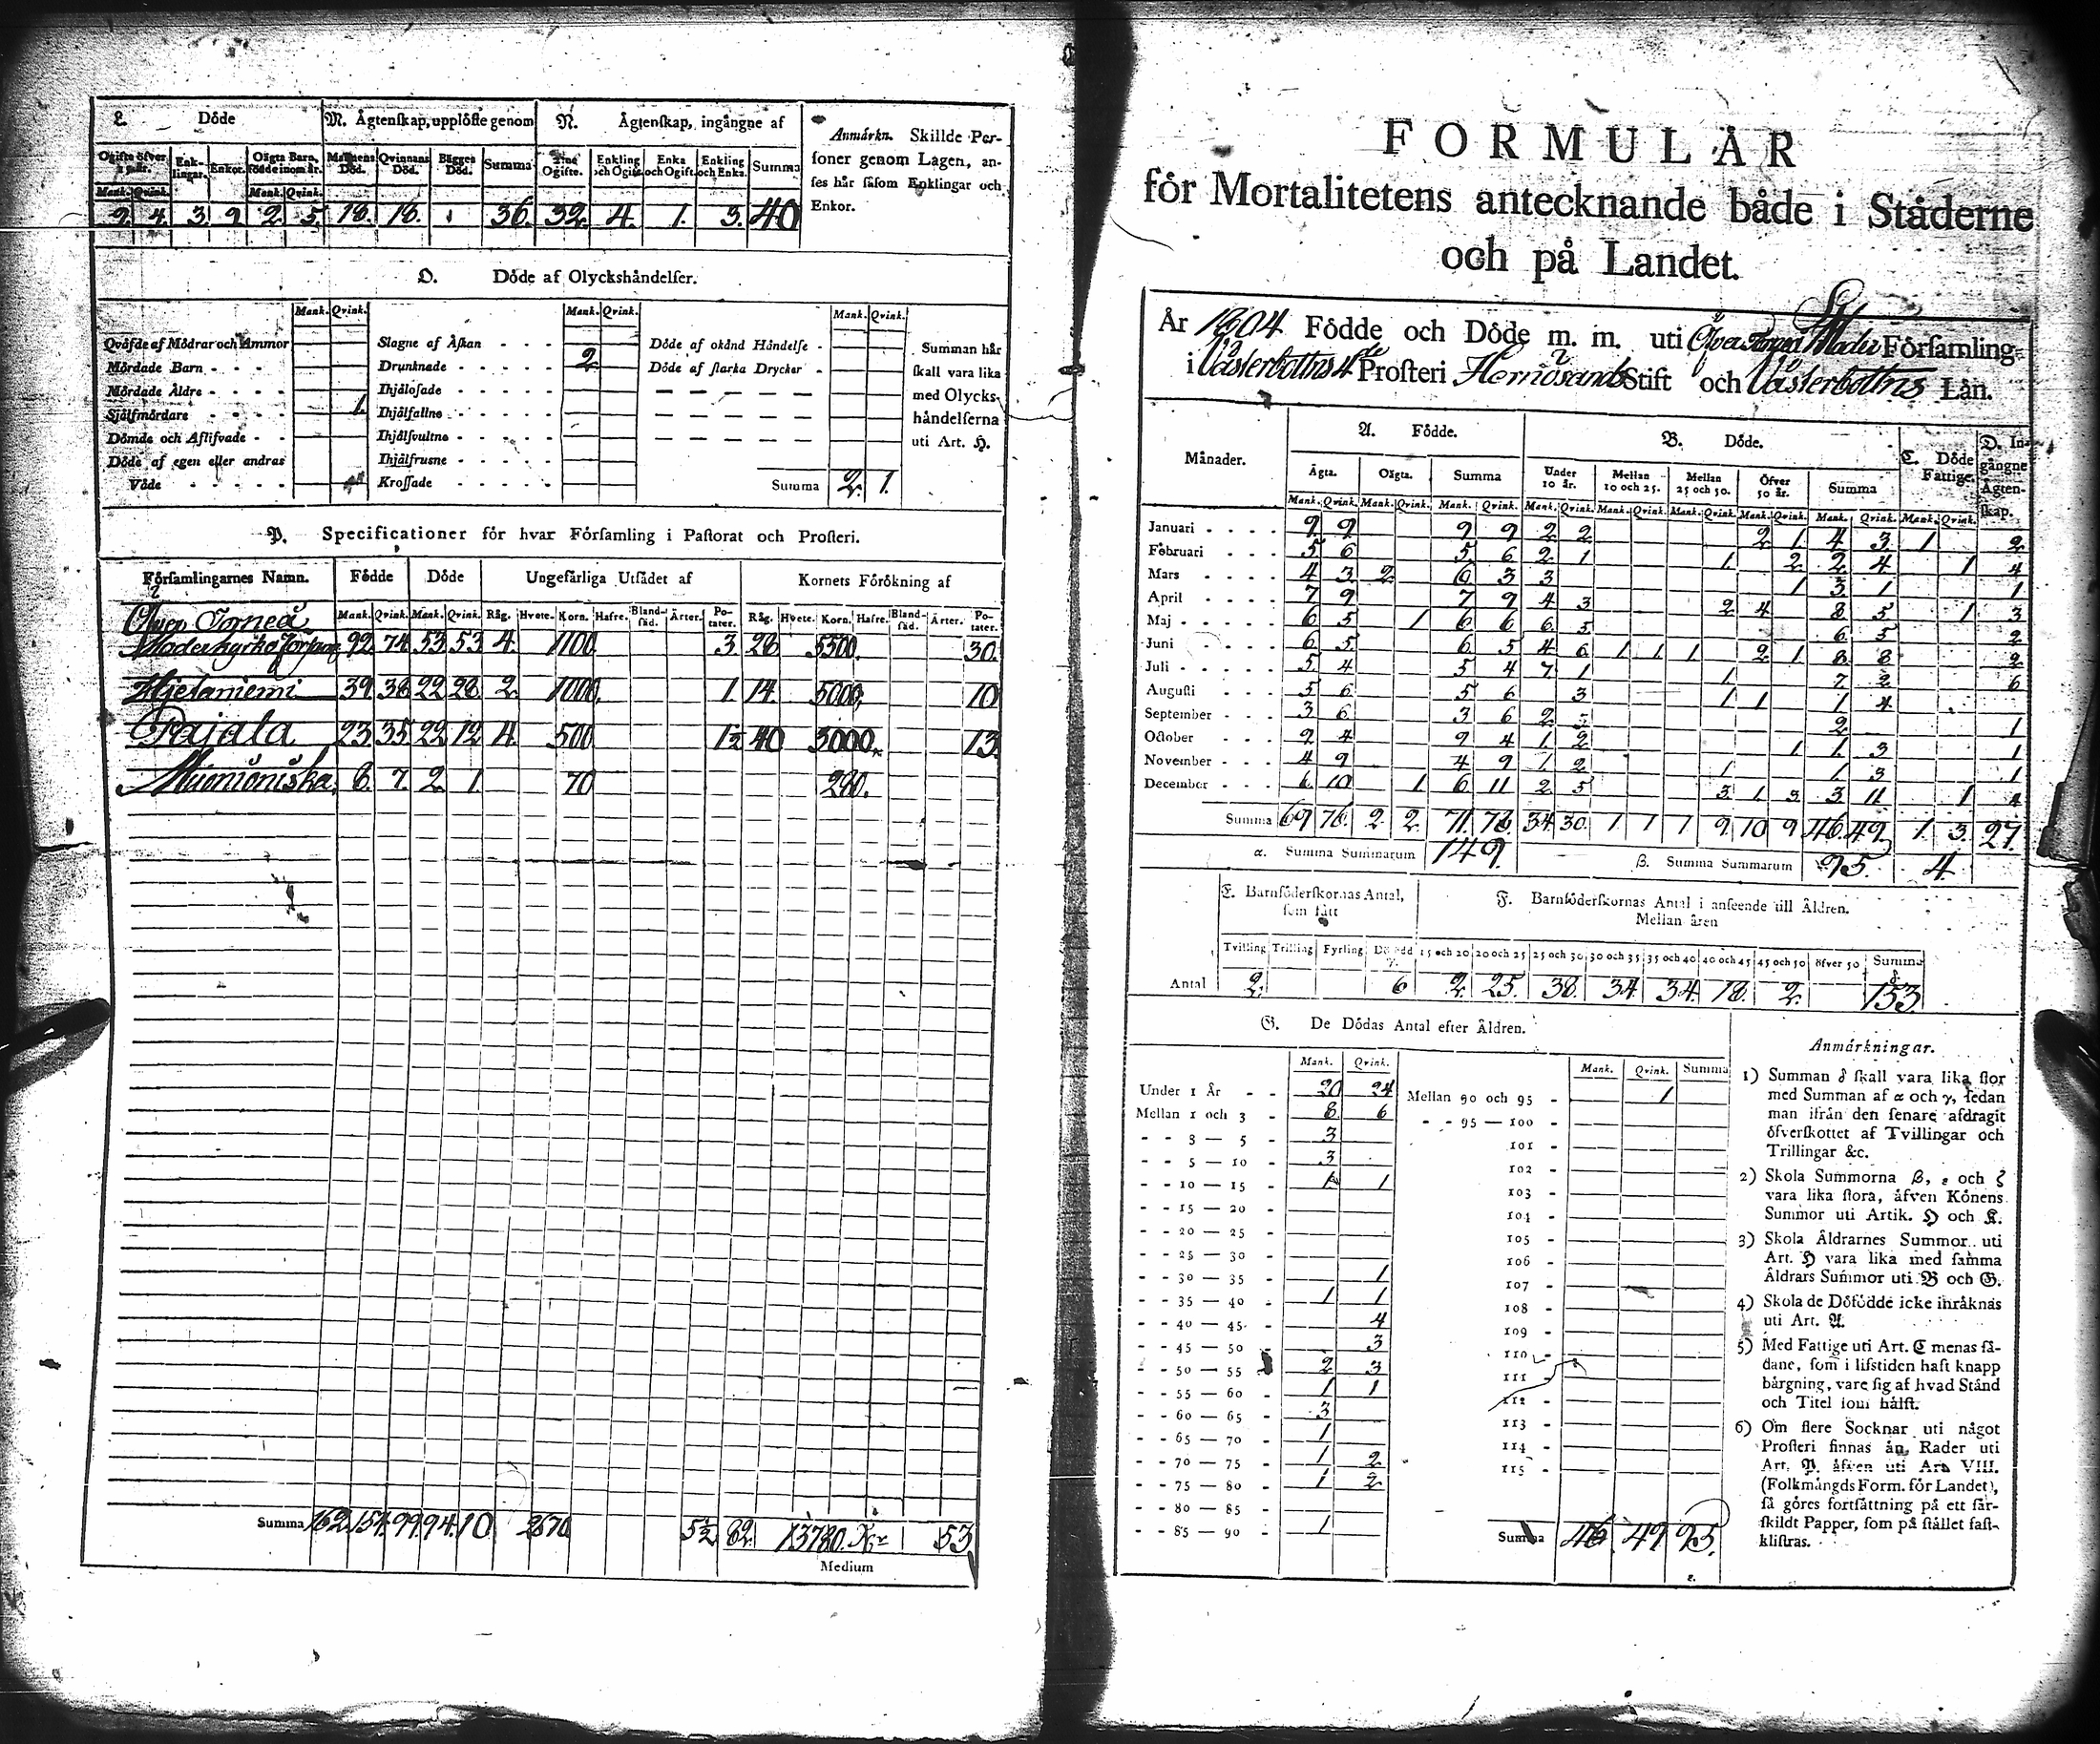 L. Döde
M. Ägtenskap, upplöste genom
N. Ägtenskap, ingångne af
Anmärkn. Skillde Per-
soner genom Lagen, an-
ses här såsom Enklingar och
Enkor.
Ogifte öfver
Enk-
lingar.
Enkor.
Oägta Barn,
födde inom år.
Mannens
Död.
Qvinnans
Död.
Bägges
Död.
Summa
Ogifte.
Enkling
och Ogift.
Enka
och Ogift.
Enkling
och Enka.
Summa
Mank. Qvink. Mank. Qvink.
2. 4. 3. 9. 2. 5. 18. 18. 36. 32. 4. 1. 3. 40
O. Döde af Olyckshändelser.
Mank. Qvink. Mank. Qvink. Mank. Qvink.
Qväfde af Mödrar och Ammor
Mördade Barn
Mördade Äldre
Självmördare 1.
Dömde och Aflifvade
Döde af egen eller andras
Våde
Slagne af Åskan
Drunknade 2
Ihjälosade
Ihjälfallne
Ihjälsvultne
Ihjälfrusne
Krossade
Döde af okänd Händelse
Döde af starka Drycker
Summa 2. 1.
Summan här
skall vara lika
med Olycks-
händelserna
uti Art. H.
P. Specificationer för hvar Församling i Pastorat och Prosteri.
Församlingarnes Namn. Födde Döde Ungefärliga Utsädet af Kornets Förökning af
Mank. Qvink. Mank. Qvink. Råg. Hvete. Korn. Hafre. Bland-säd. Ärter. Po-tater. Råg. Hvete. Korn. Hafre. Bland-säd. Ärter. Po-tater.
Öfver Torneå
Moderkyrko 92 74 53 53 4. 1100 3 28 5500 30.
Hjetaniemi 39 38 22 28 2. 1000. 1. 14. 5000. 10
Pajala 23 35 22 12 4. 500 1½ 40 3000. 13
Muonioniska 8. 7. 2. 1. 70 280.
Summa 162 154. 99 94. 10 2670 5½ 82. 13780. 53
Medium
FORMULÄR
för Mortalitetens antecknande både i Städerne
och på Landet.
År 1804 Födde och Döde m. m. uti Öfver Torneå Moder Församling
i Västerbottns 4de Prosteri Hernösands Stift och Västerbottns Län.
Månader. A. Födde. B. Döde. C. Döde Fattige. D. In-gångne Ägten-skap.
Ägta. Oägta. Summa Under 10 år. Mellan 10 och 25. Mellan 25 och 50. Öfver 50 år. Summa
Mank. Qvink. Mank. Qvink. Mank. Qvink. Mank. Qvink. Mank. Qvink. Mank. Qvink. Mank. Qvink. Mank. Qvink. Mank. Qvink.
Januari 9 9 9 9 2 2 2 1 4 3 1 2
Februari 5 6 5 6 2 1 1 2 2 4 1 4
Mars 4 3 2 6 3 3 1 3 1 1
April 7 9 7 9 4 3 2 4 8 5 1 3
Maj 6 5 1 6 6 6 5 6 5 2
Juni 6 5 6 5 4 6 1 1 1 2 1 8 8 2
Juli 5 4 5 4 7 1 1 7 2 6
Augusti 5 6 5 6 3 1 1 1 4
September 3 6 3 6 2 2 1
October 9 4 9 4 1 2 1 1 3 1
November 4 9 4 9 1 2 1 1 3 1
December 6 10 1 6 11 2 5 3 1 3 3 11 1 4
Summa 69 76. 2 2 71. 78. 34 30. 1 1 1 9 10 9 46. 49. 1. 3. 27.
α. Summa Summarum 149.
β. Summa Summarum 95. 4.
E. Barnföderskornas Antal,
som fått
F. Barnföderskornas Antal i anseende till Åldren.
Mellan åren
Tvilling Trilling Fyrling Dödfödd 15 och 20 20 och 25 25 och 30 30 och 35 35 och 40 40 och 45 45 och 50 öfver 50 Summa
Antal 2. 6 2. 25. 38. 34. 34. 18. 2. 153.
G. De Dödas Antal efter Åldren.
Mank. Qvink. Mank. Qvink. Summa
Under 1 År 20 24
Mellan 1 och 3 8 6
3 — 5 3
5 — 10 3
10 — 15 1 1
15 — 20
20 — 25
25 — 30
30 — 35 1
35 — 40 1 1
40 — 45 4
45 — 50 3
50 — 55 2 3
55 — 60 1 1
60 — 65 3
65 — 70 1
70 — 75 1 2
75 — 80 1 2
80 — 85
85 — 90 1
Mellan 90 och 95 1
95 — 100
101
102
103
104
105
106
107
108
109
110
111
112
113
114
115
Summa 46. 49 95.
Anmärkningar.
1) Summan δ skall vara lika stor
med Summan af α och γ, sedan
man ifrån den senare afdragit
öfverskottet af Tvillingar och
Trillingar &c.
2) Skola Summorna β, ε och ζ
vara lika stora, äfven Könens
Summor uti Artik. H och K.
3) Skola Åldrarnes Summor uti
Art. H vara lika med samma
Åldrars Summor uti B och G.
4) Skola de Dödfödde icke inräknas
uti Art. A.
5) Med Fattige uti Art. C menas så-
dane, som i lifstiden haft knapp
bärgning, vare sig af hvad Stånd
och Titel som hälst.
6) Om flere Socknar uti något
Prosteri finnas än Rader uti
Art. P. äfven uti Art. VIII.
(Folkmängds Form. för Landet),
så göres fortsättning på ett sär-
skildt Papper, som på stället fast-
klistras.